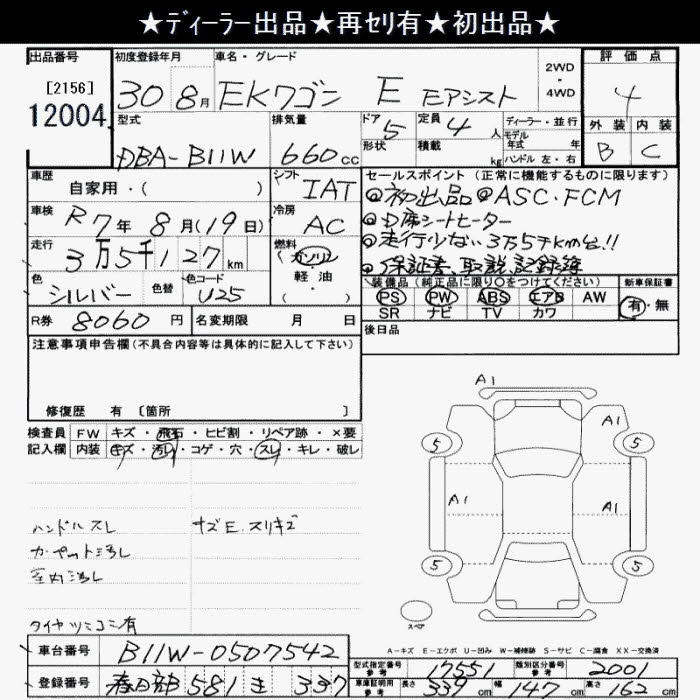 ★ﾃﾞｨｰﾗｰ出品★再ｾﾘ有★初出品★
出品番号
[2156]
12004
初度登録年月
30 8月
車名・グレード
EKワゴン E Eアシスト
2WD・4WD
評価点
4
外装 内装
B C
型式
DBA-B11W
排気量
660cc
ドア 5
形状
定員 4人
積載 kg
ディーラー・並行
モデル年式 年
ハンドル 左・右
車歴
自家用・( )
シフト
IAT
セールスポイント (正常に機能するものに限ります)
◎初出品◎ASC・FCM
◎D席シートヒーター
◎走行少ない3万5千km台!!
◎保証書、取説、記録簿
車検
R7年8月(19日)
冷房
AC
走行
3万5千127km
燃料
(ガソリン
軽・油
( )
色
シルバー
色替
色コード
U25
装備品(純正品に限り○をつけてください)
PS PW ABS エアB AW
SR ナビ TV カワ
新車保証書
有・無
R券 8060円
名変期限 月 日
後日品
注意事項申告欄(不具合内容等は具体的に記入して下さい)
修復歴 有 [箇所 ]
検査員記入欄
FW キズ・飛石・ヒビ割・リペア跡・×要
内装 キズ・汚れ・コゲ・穴・スレ・キレ・破レ
ハンドルスレ
カーペット汚し
室内汚し
タイヤツミコミ有
A1
A1
5 5
A1 A1
5 5
スペア
A-キズ E-エクボ U-凹み W-補修跡 S-サビ C-腐食 XX-交換済
車台番号 B11W-0507542
登録番号 春日部 581 き 337
型式指定番号 参考 17551
類別区分番号 参考 2001
車庫証明用 参考 長さ 339cm 幅 147cm 高さ 162cm